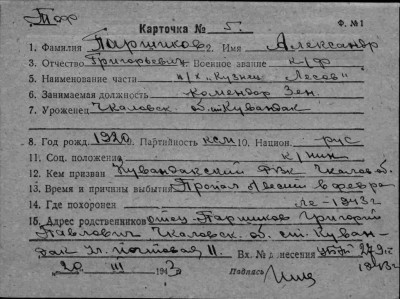 Тоф
Карточка № 5. Ф. №1
1. Фамилия Паршиков 2. Имя Александр
3. Отчество Григорьевич Военное звание к/ф
5. Наименование части п/х „Кузнец Лесов"
6. Занимаемая должность комендор Зен.
7. Уроженец Чкаловск. обл. ст. Кувандак
8. Год рожд 1920. Партийность ксм 10. Национ. рус
11. Соц. положение
12. Кем призван Кувандакский РВК Чкалов. об.
13. Время и причины выбытия Пропал б/вести в февра
14. Где похоронен ле - 1943 г
15. Адрес родственников отец - Паршиков Григорий
Павлович Чкаловск. об. ст. Куван-
дак ул. Почтовая 11. Вх. № донесения 279
20 III 1943 г. Подпись 1943 г